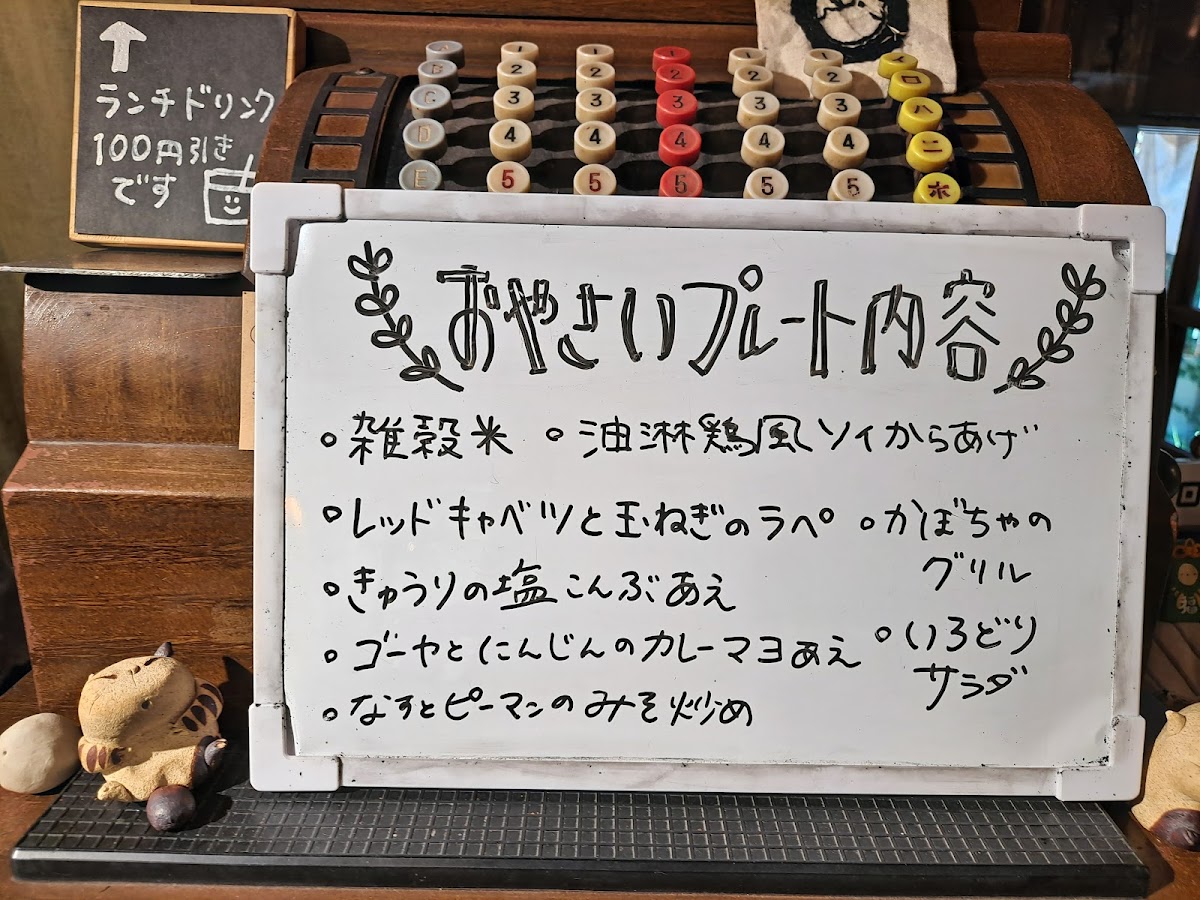 ランチドリンク
100円引き
です
A 1 1 1 1 1 イ
B 2 2 2 2 2 ロ
C 3 3 3 3 3 ハ
D 4 4 4 4 4 ニ
E 5 5 5 5 5 ホ
おやさいプレート内容
・雑穀米 ・油淋鶏風ソイからあげ
・レッドキャベツと玉ねぎのラペ ・かぼちゃの
グリル
・きゅうりの塩こんぶあえ
・ゴーヤとにんじんのカレーマヨあえ ・いろどり
サラダ
・なすとピーマンのみそ炒め